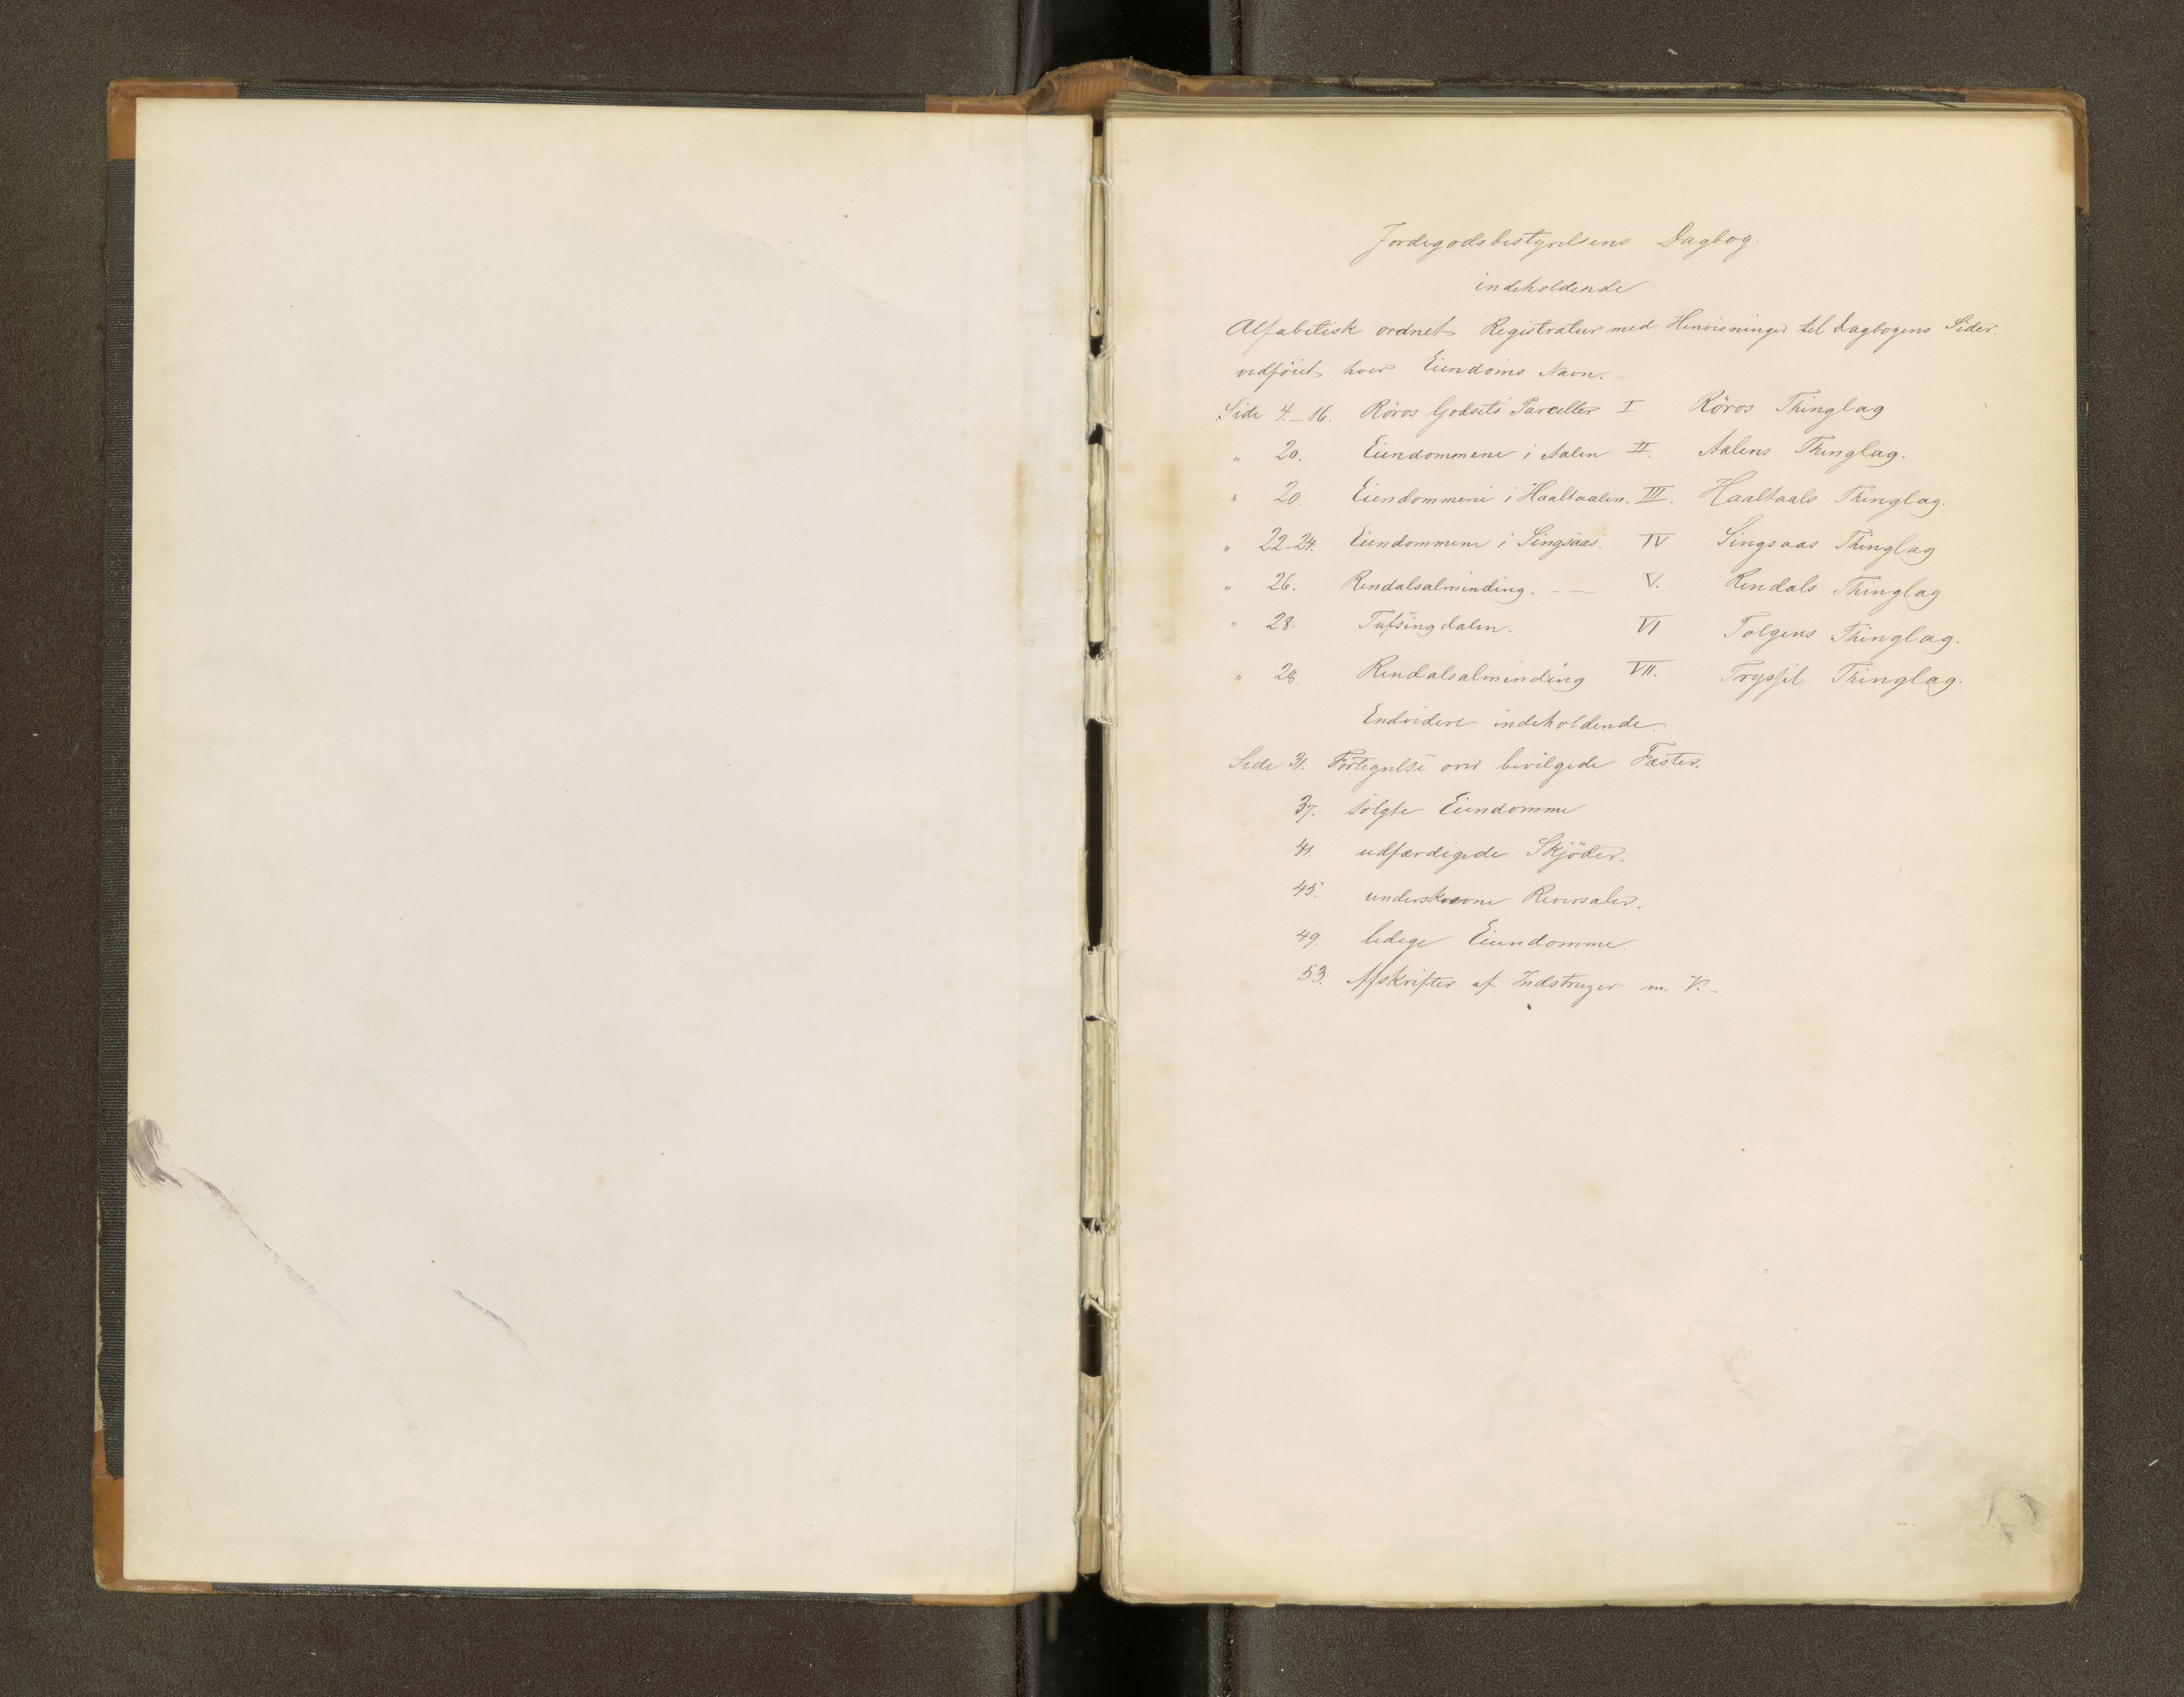 Jordegodsbestyrelsens Dagbog.
indeholdende
Alfabetisk ordnet Registratur med Henvisninger til Dagbogens Sider.
vedføiet hver Eiendoms Navn.
Side 4.-16. Röros Godsets Parceller I Röros Thinglag
" 20. Eiendommene i Aalen II. Aalens Thinglag.
" 20. Eiendommene i Haaltaalen. III. Haaltaals Thinglag.
" 22-24. Eiendommene i Singsaas. IV Singsaas Thinglag
" 26. Rendalsalminding. - — V. Rendals Thinglag
" 28. Tufsingdalen. VI Tolgens Thinglag.
" 28. Rendalsalminding VII. Trysjil Thinglag.
Endvidere indeholdende.
Side 31. Fortegnelse over bevilgede Fæster.
37. solgte Eiendomme
41. udfærdigede Skjöder.
45. underskrevne Reversaler.
49. ledige Eiendomme.
53. Afskrifter af Indstruxer m. V.